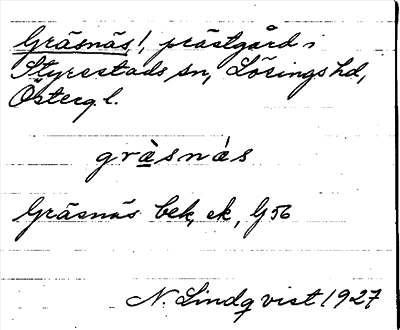 Gräsnäs!, prästgård i
Styrestads sn, Lösings hd,
Österg. l.
gràsnás
Gräsnäs bek, ek, G 56
N. Lindqvist 1927